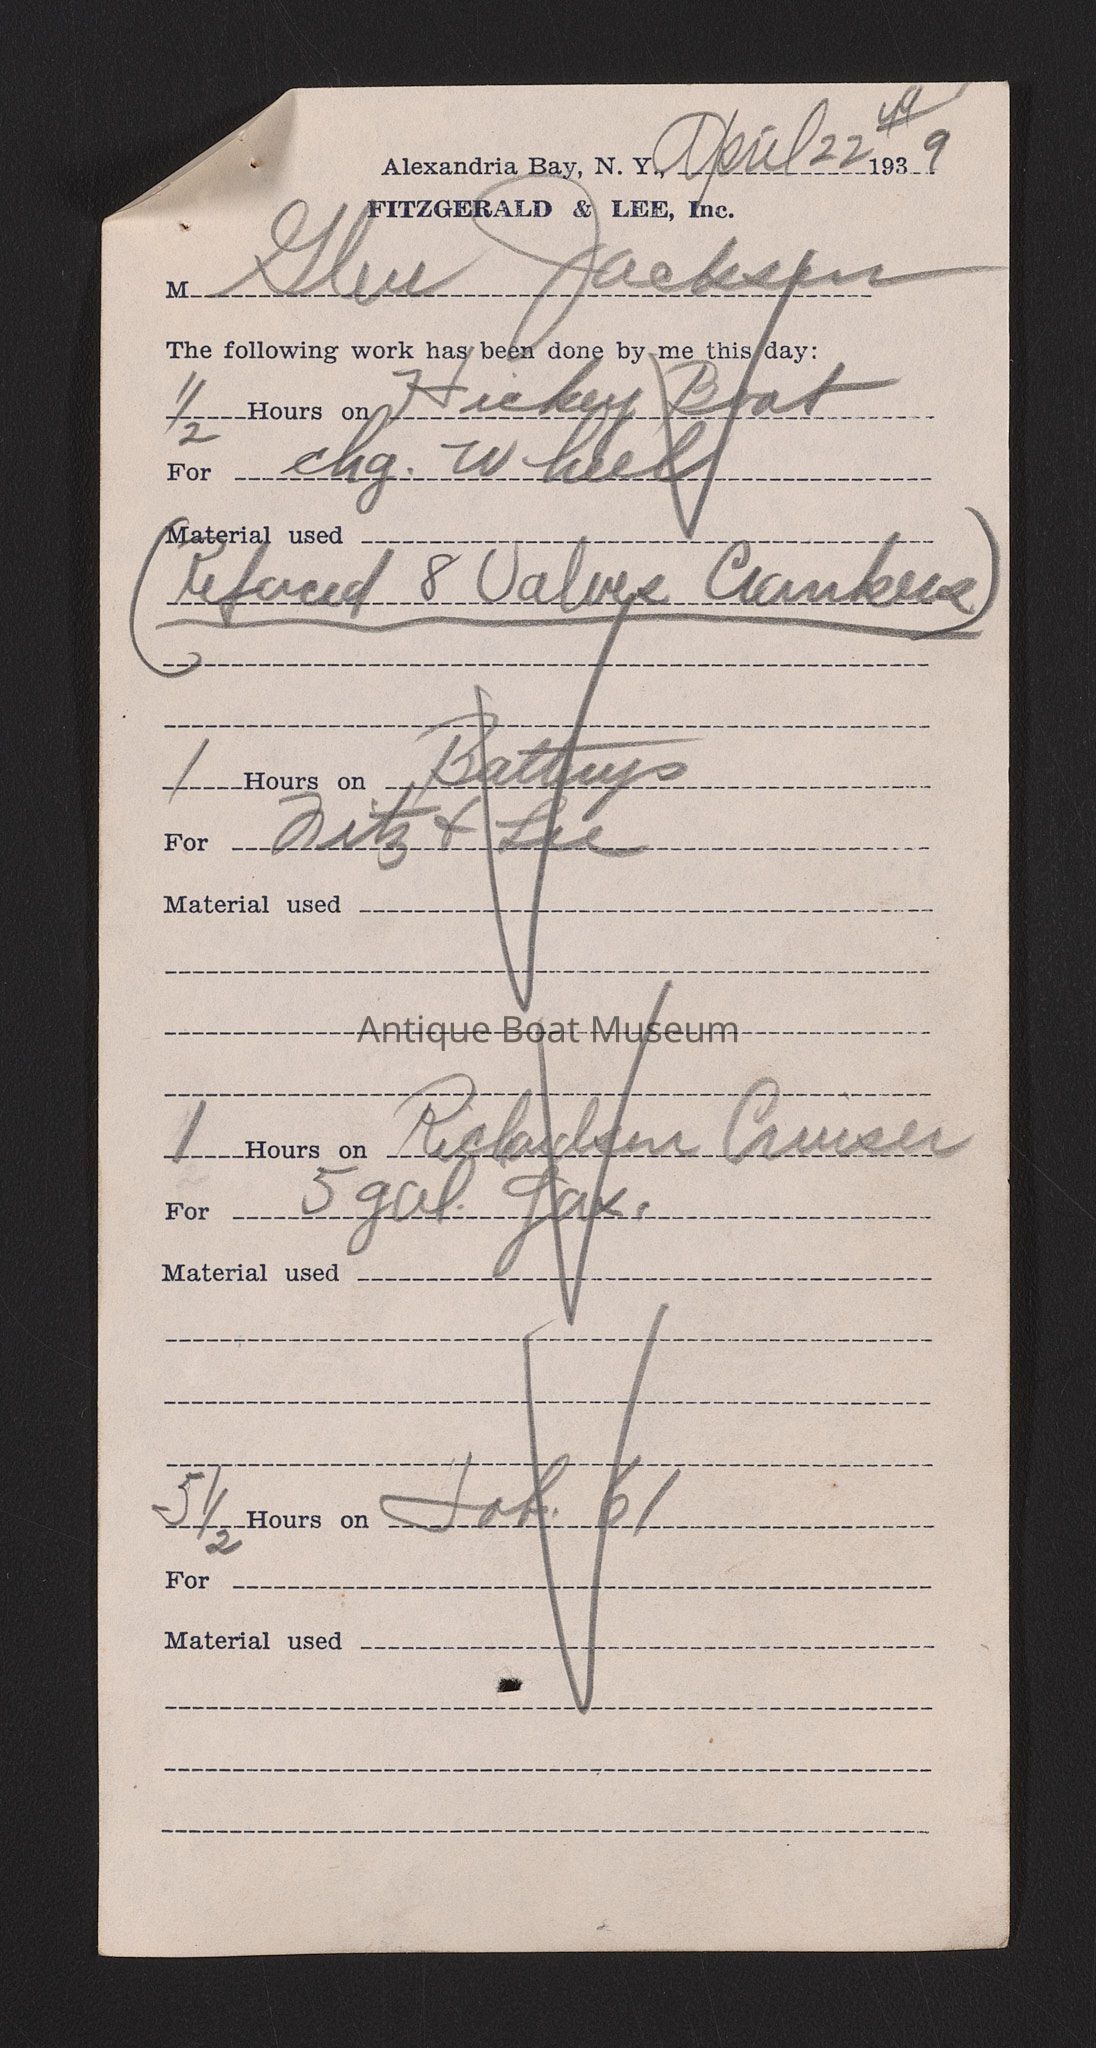 April 22 49
Alexandria Bay, N. Y., 193 9
FITZGERALD & LEE, Inc.
M Glen Jackson
The following work has been done by me this day:
1/2 Hours on Hickey Boat
For chg. Wheel
Material used
(Refaced 8 Valves Crankens)
1 Hours on Batterys
For Fitz & Lee
Material used
Antique Boat Museum
1 Hours on Richardson Cruiser
For 5 gal. gas.
Material used
5 1/2 Hours on Job. 61
For
Material used